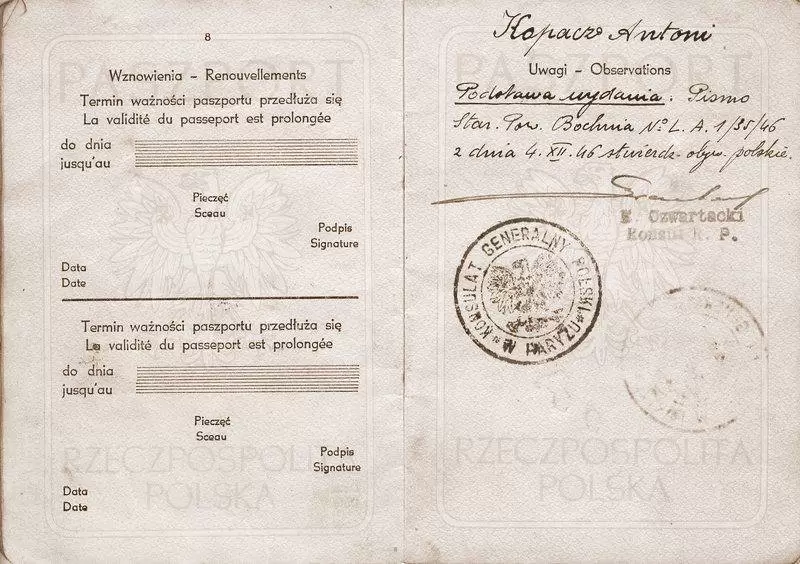 8
PASZPORT
Wznowienia - Renouvellements
Termin ważności paszportu przedłuża się
La validité du passeport est prolongée
do dnia
jusqu'au
Pieczęć
Sceau
Podpis
Signature
Data
Date
Termin ważności paszportu przedłuża się
La validité du passeport est prolongée
do dnia
jusqu'au
Pieczęć
Sceau
Podpis
Signature
RZECZPOSPOLITA
POLSKA
Data
Date
Kopacz Antoni
PASZPORT
Uwagi - Observations
Podstawa wydania. Pismo
Star. Pow. Bochnia Nº L. A. 1/35/46
z dnia 4. XII. 46 stwierdz. obyw. polskie.
K. Czwartacki
Konsul R. P.
KONSULAT GENERALNY POLSKI
W PARYŻU
RZECZPOSPOLITA
POLSKA